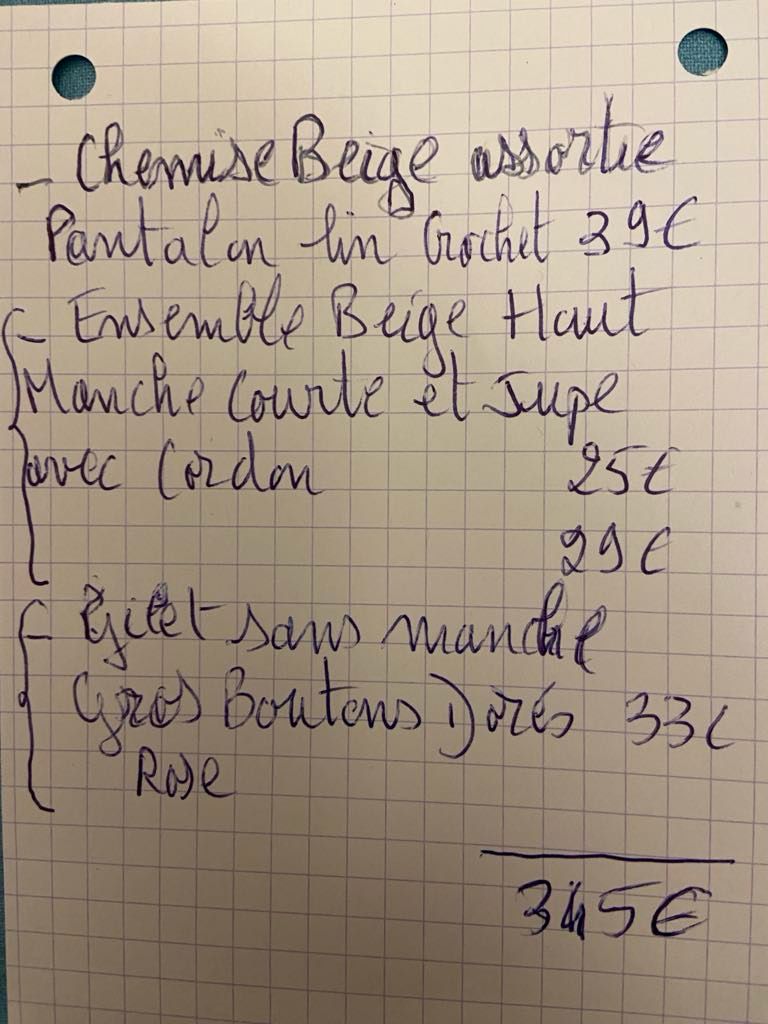 - Chemise Beige assortie
Pantalon lin Crochet 39€
- Ensemble Beige Haut
Manche Courte et Jupe
avec Cordon 25€
29€
- Gilet sans manche
Gros Boutons Dorés 33€
Rose
345€